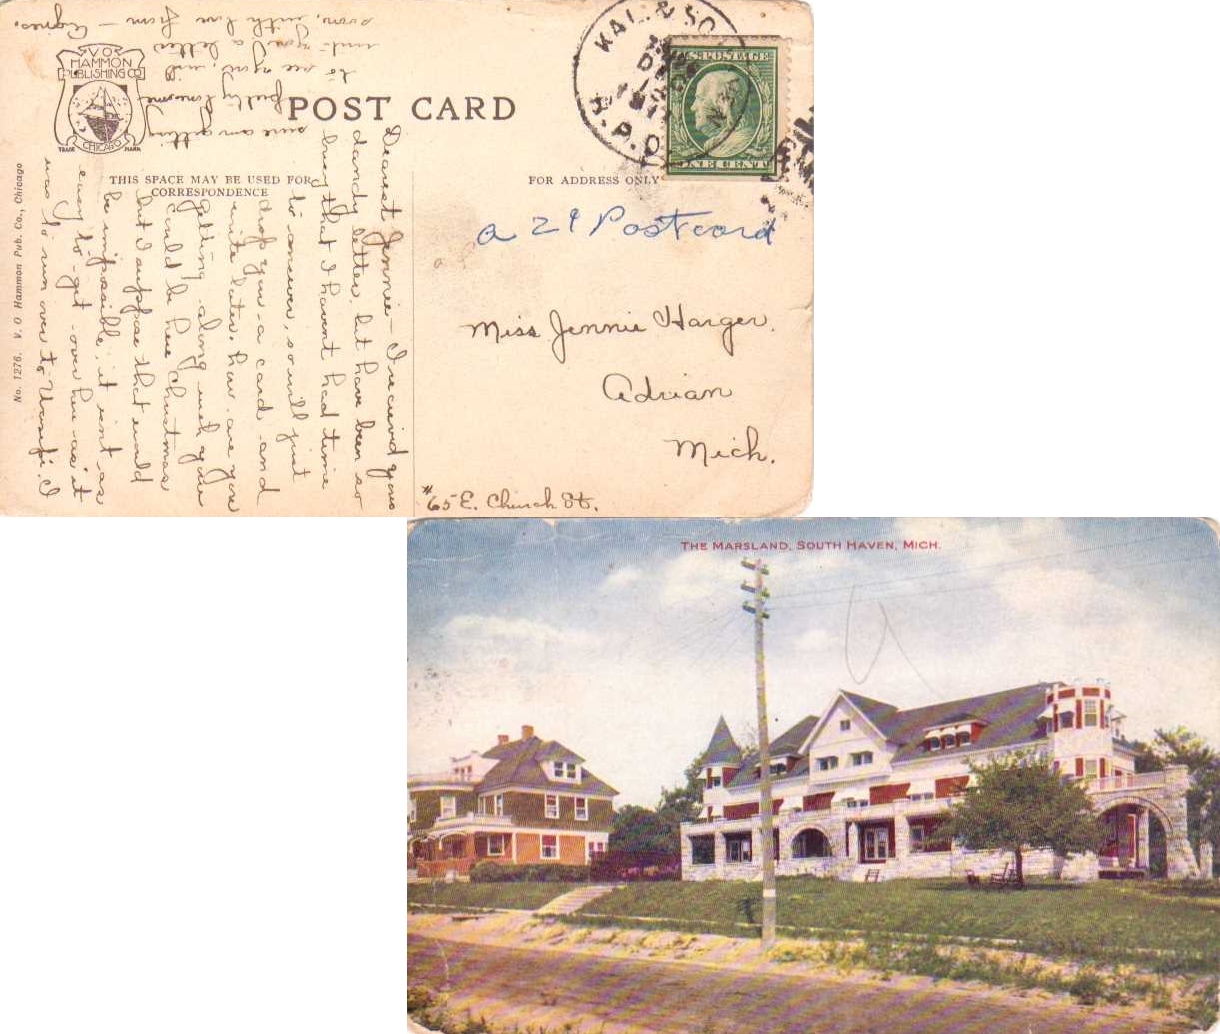 POST CARD
THIS SPACE MAY BE USED FOR
CORRESPONDENCE
FOR ADDRESS ONLY
V.O.
HAMMON
PUBLISHING CO.
CHICAGO
TRADE MARK
No. 1276. V. O Hammon Pub. Co., Chicago
KAL. & SO.
R.P.O.
U.S. POSTAGE
ONE CENT
a 2¢ Postcard
Miss Jennie Harger.
Adrian
Mich.
#65 E. Church St.
Dearest Jennie - I received your
dandy letter, but have been so
busy that I havent had time
to answer, so will just
drop you a card and
write later. how are you
getting along wish you
could be here Christmas
but I suppose that would
be impossible, it isnt as
easy to get over here as it
was to run over to I
sure am getting
pretty lonesome
to see you, will
write you a letter
soon, with love from - Agnes.
THE MARSLAND, SOUTH HAVEN, MICH.